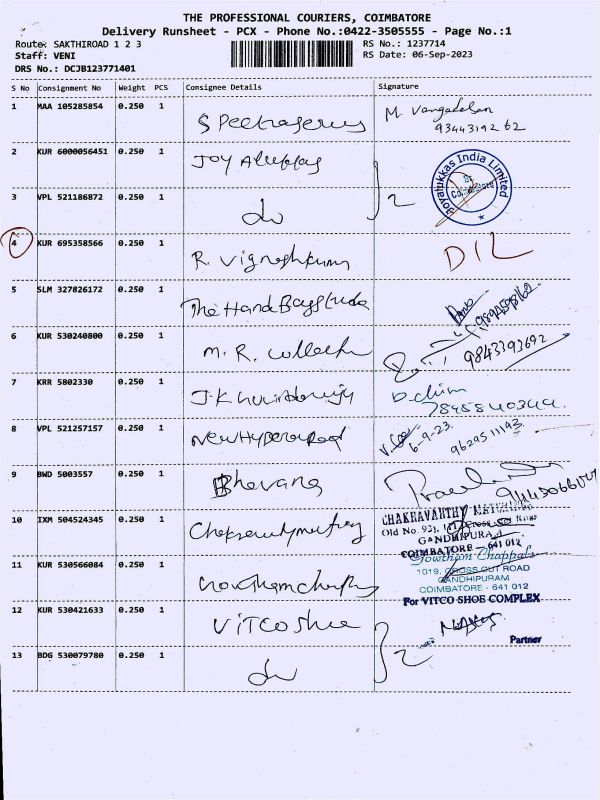 THE PROFESSIONAL COURIERS, COIMBATORE
Delivery Runsheet - PCX - Phone No.:0422-3505555 - Page No.:1
Route: SAKTHIROAD 1 2 3
RS No.: 1237714
Staff: VENI
RS Date: 06-Sep-2023
DRS No.: DCJB123771401
S No Consignment No Weight PCS Consignee Details Signature
1 MAA 105285854 0.250 1
M. Vangadesan
9344319262
2 KUR 6000056451 0.250 1 JOY Alukkas
Joyalukkas India Limited
Coimbatore
3 VPL 521186872 0.250 1 do 2
4 KUR 695358566 0.250 1 R. Vigneshkumar DIL
5 SLM 327826172 0.250 1 The Hand Bags
9894598162
6 KUR 530240800 0.250 1 M. R. collection
9843393692
7 KRR 5802330 0.250 1 J.K
7845840344
8 VPL 521257157 0.250 1 New Hyderabad
6-9-23
9629511193
9 BWD 5003557 0.250 1 Bhavana
10 IXM 504524345 0.250 1
CHAKRAVARTHY
Old No. 93, Cross
GANDHIPURAM
COIMBATORE - 641 012
11 KUR 530566084 0.250 1
Gowtham Chappals
1019, CROSS CUT ROAD
GANDHIPURAM
COIMBATORE - 641 012
12 KUR 530421633 0.250 1 Vitco Shoe
For VITCO SHOE COMPLEX
Partner
13 BDG 530079780 0.250 1 do 2